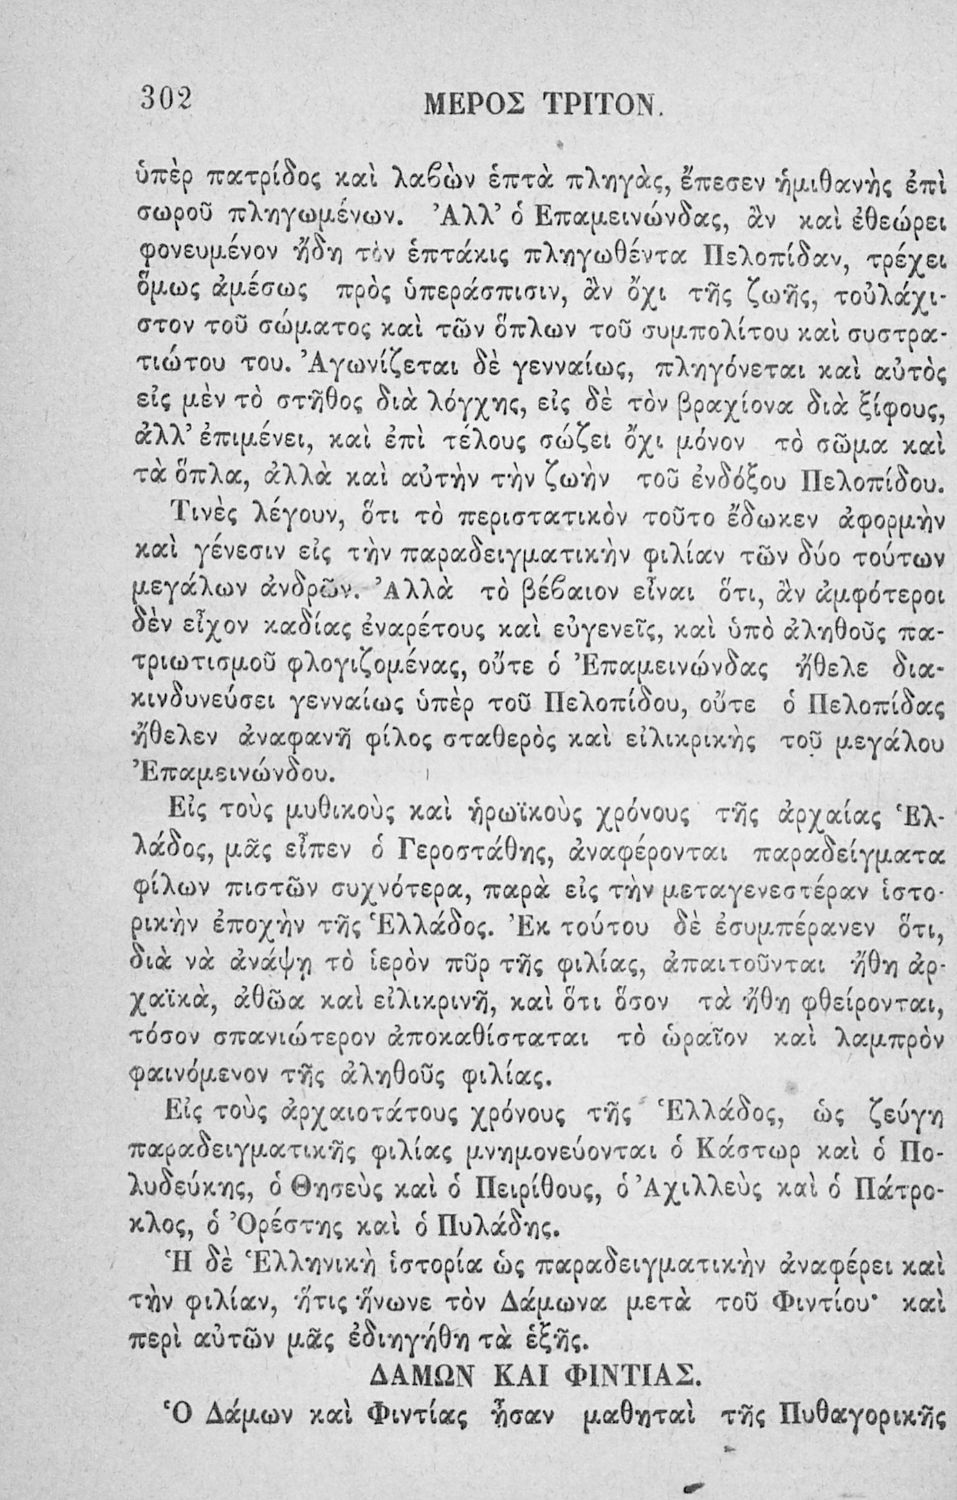 302
ΜΕΡΟΣ ΤΡΙΤΟΝ.
ὑπὲρ πατρίδος καὶ λαβὼν ἑπτὰ πληγὰς, ἔπεσεν ἡμιθανὴς ἐπὶ
σωροῦ πληγωμένων. Ἀλλ’ ὁ Επαμεινώνδας, ἂν καὶ ἐθεώρει
φονευμένον ἤδη τὸν ἑπτάκις πληγωθέντα Πελοπίδαν, τρέχει
ὅμως ἀμέσως πρὸς ὑπεράσπισιν, ἂν ὄχι τῆς ζωῆς, τοὐλάχι-
στον τοῦ σώματος καὶ τῶν ὅπλων τοῦ συμπολίτου καὶ συστρα-
τιώτου του. Ἀγωνίζεται δὲ γενναίως, πληγόνεται καὶ αὐτὸς
εἰς μὲν τὸ στῆθος διὰ λόγχης, εἰς δὲ τὸν βραχίονα διὰ ξίφους,
ἀλλ’ ἐπιμένει, καὶ ἐπὶ τέλους σώζει ὄχι μόνον τὸ σῶμα καὶ
τὰ ὅπλα, ἀλλὰ καὶ αὐτὴν τὴν ζωὴν τοῦ ἐνδόξου Πελοπίδου.
Τινὲς λέγουν, ὅτι τὸ περιστατικὸν τοῦτο ἔδωκεν ἀφορμὴν
καὶ γένεσιν εἰς τὴν παραδειγματικὴν φιλίαν τῶν δύο τούτων
μεγάλων ἀνδρῶν. Ἀλλὰ τὸ βέβαιον εἶναι ὅτι, ἂν ἀμφότεροι
δὲν εἶχον καδίας ἐναρέτους καὶ εὐγενεῖς, καὶ ὑπὸ ἀληθοῦς πα-
τριωτισμοῦ φλογιζομένας, οὔτε ὁ Ἐπαμεινώνδας ἤθελε δια-
κινδυνεύσει γενναίως ὑπὲρ τοῦ Πελοπίδου, οὔτε ὁ Πελοπίδας
ἤθελεν ἀναφανῆ φίλος σταθερὸς καὶ εἰλικρικὴς τοῦ μεγάλου
Ἐπαμεινώνδου.
Εἰς τοὺς μυθικοὺς καὶ ἡρωϊκοὺς χρόνους τῆς ἀρχαίας Ἑλ-
λάδος, μᾶς εἶπεν ὁ Γεροστάθης, ἀναφέρονται παραδείγματα
φίλων πιστῶν συχνότερα, παρὰ εἰς τὴν μεταγενεστέραν ἱστο-
ρικὴν ἐποχὴν τῆς Ἑλλάδος. Ἐκ τούτου δὲ ἐσυμπέρανεν ὅτι,
διὰ νὰ ἀνάψῃ τὸ ἱερὸν πῦρ τῆς φιλίας, ἀπαιτοῦνται ἤθη ἀρ-
χαϊκὰ, ἀθῶα καὶ εἰλικρινῆ, καὶ ὅτι ὅσον τὰ ἤθη φθείρονται,
τόσον σπανιώτερον ἀποκαθίσταται τὸ ὡραῖον καὶ λαμπρὸν
φαινόμενον τῆς ἀληθοῦς φιλίας.
Εἰς τοὺς ἀρχαιοτάτους χρόνους τῆς Ἑλλάδος, ὡς ζεύγη
παραδειγματικῆς φιλίας μνημονεύονται ὁ Κάστωρ καὶ ὁ Πο-
λυδεύκης, ὁ Θησεὺς καὶ ὁ Πειρίθους, ὁ Ἀχιλλεὺς καὶ ὁ Πάτρο-
κλος, ὁ Ὀρέστης καὶ ὁ Πυλάδης.
Ἡ δὲ Ἑλληνικὴ ἱστορία ὡς παραδειγματικὴν ἀναφέρει καὶ
τὴν φιλίαν, ἥτις ἥνωνε τὸν Δάμωνα μετὰ τοῦ Φιντίου· καὶ
περὶ αὐτῶν μᾶς ἐδιηγήθη τὰ ἑξῆς.
ΔΑΜΩΝ ΚΑΙ ΦΙΝΤΙΑΣ.
Ὁ Δάμων καὶ Φιντίας ἦσαν μαθηταὶ τῆς Πυθαγορικῆς